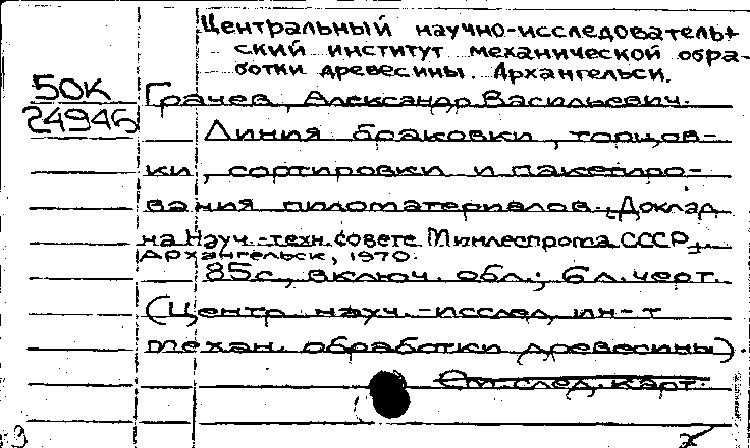 Центральный научно-исследователь-
ский институт механической обра-
ботки древесины. Архангельск.
50К
24946
Грачев, Александр Васильевич.
Линия браковки, торцов-
ки, сортировки и пакетиро-
вания пиломатериалов. Доклад
на Науч.-техн. совете Минлеспрома СССР.
Архангельск, 1970.
85с., включ. обл.; 6 л. черт.
(Центр. науч.-исслед. ин-т
механ. обработки древесины).
См. след. карт.